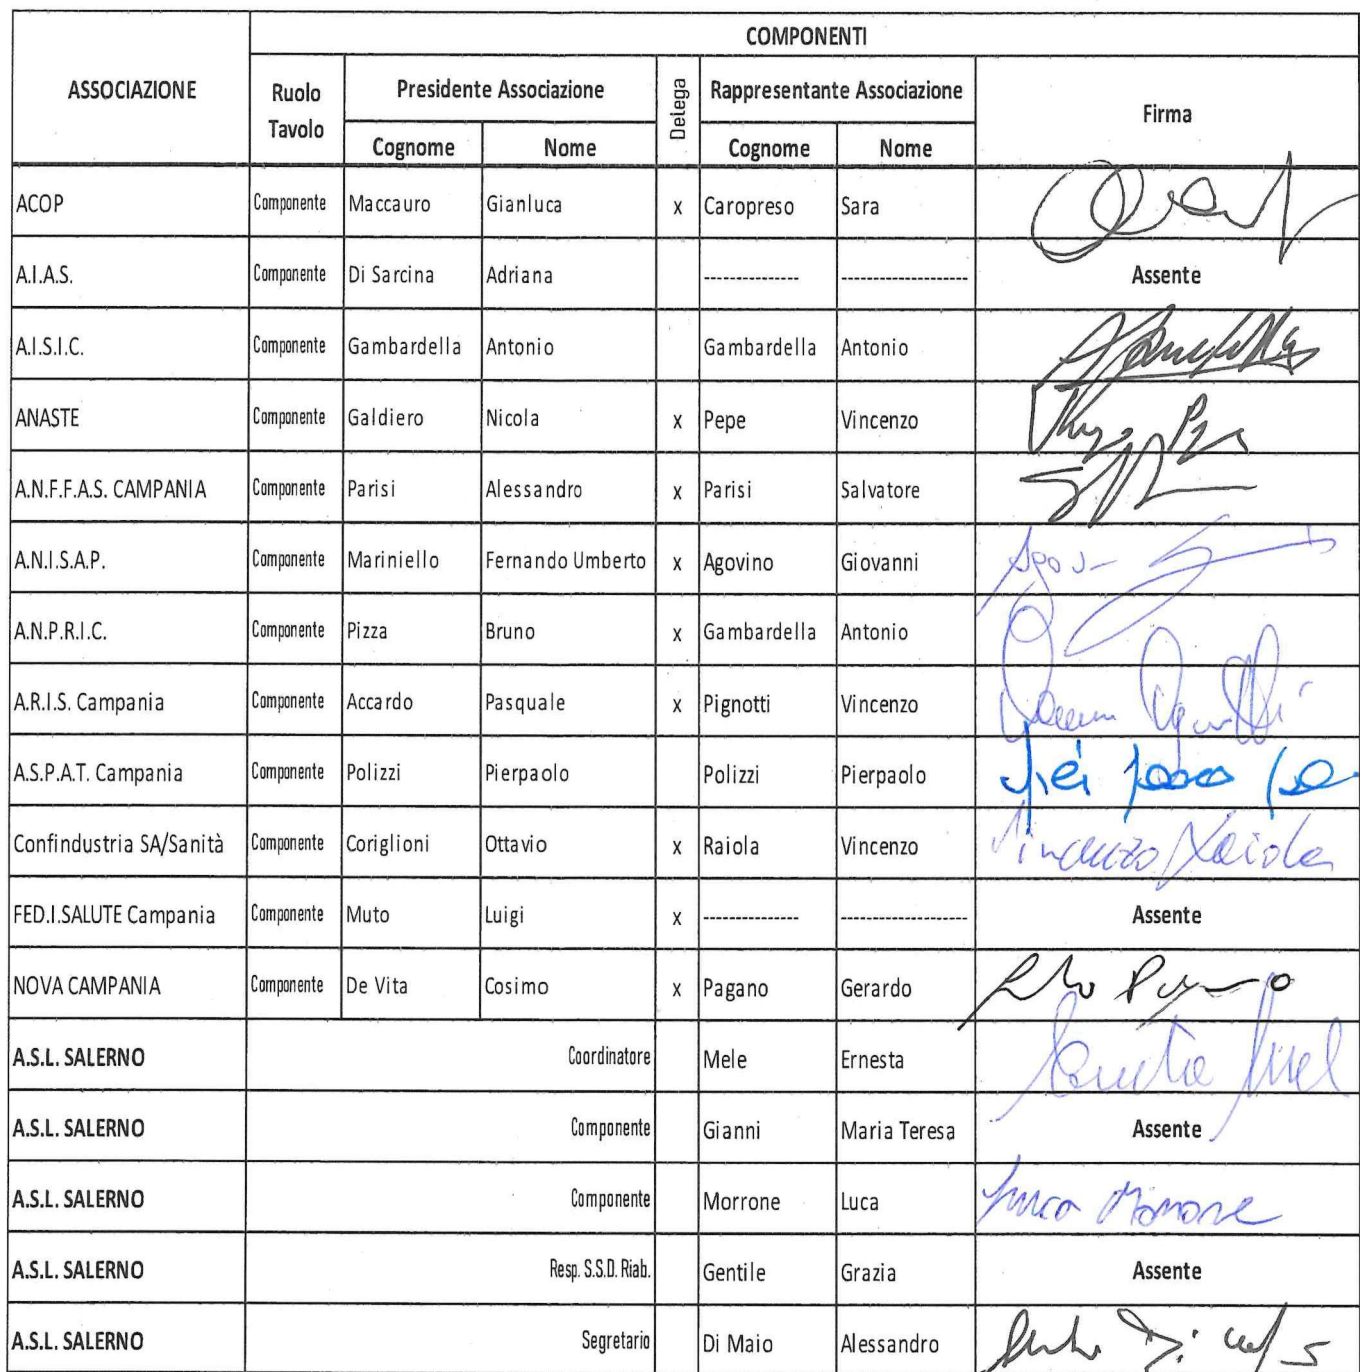 COMPONENTI
ASSOCIAZIONE Ruolo Tavolo Presidente Associazione Delega Rappresentante Associazione Firma
Cognome Nome Cognome Nome
ACOP Componente Maccauro Gianluca x Caropreso Sara
A.I.A.S. Componente Di Sarcina Adriana -------------- ------------------- Assente
A.I.S.I.C. Componente Gambardella Antonio Gambardella Antonio
ANASTE Componente Galdiero Nicola x Pepe Vincenzo
A.N.F.F.A.S. CAMPANIA Componente Parisi Alessandro x Parisi Salvatore
A.N.I.S.A.P. Componente Mariniello Fernando Umberto x Agovino Giovanni
A.N.P.R.I.C. Componente Pizza Bruno x Gambardella Antonio
A.R.I.S. Campania Componente Accardo Pasquale x Pignotti Vincenzo
A.S.P.A.T. Campania Componente Polizzi Pierpaolo Polizzi Pierpaolo
Confindustria SA/Sanità Componente Coriglioni Ottavio x Raiola Vincenzo Vincenzo Raiola
FED.I.SALUTE Campania Componente Muto Luigi x -------------- ------------------- Assente
NOVA CAMPANIA Componente De Vita Cosimo x Pagano Gerardo
A.S.L. SALERNO Coordinatore Mele Ernesta
A.S.L. SALERNO Componente Gianni Maria Teresa Assente
A.S.L. SALERNO Componente Morrone Luca Luca Morrone
A.S.L. SALERNO Resp. S.S.D. Riab. Gentile Grazia Assente
A.S.L. SALERNO Segretario Di Maio Alessandro